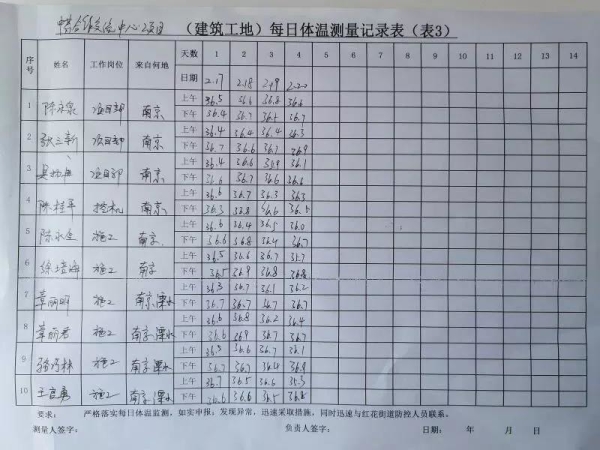 （建筑工地）每日体温测量记录表（表3）
序号 姓名 工作岗位 来自何地 天数 1 2 3 4 5 6 7 8 9 10 11 12 13 14
日期 2.17 2.18 2.19 2.20
1 项目部 南京 上午 36.5 36.6 36.8 36.6
下午 36.4 36.7 36.5 36.7
2 项目部 南京 上午 37.4 36.4 36.4
下午 36.7 36.6 36.7 36.9
3 项目部 南京 上午 36.4 36.6 36.1
下午 36.6 36.7 36.6 36.6
4 陈桂平 挖机 南京 上午 36.6 36.7 36.3 36.3
下午 36.3 36.8 36.6
5 施工 南京 上午 36.6 36.4 36.5 36.0
下午 36.6 36.8 36.4 36.7
6 徐培海 施工 南京 上午 36.5 36.6 36.7
下午 36.5 36.9 36.8 36.8
7 章丽明 施工 南京溧水 上午 36.3 36.7 36.1 36.2
下午 36.7 36.7 36.7 36.7
8 章丽君 施工 南京溧水 上午 36.6 36.8 36.2 36.4
下午 36.6 36.9 36.7 36.7
9 施工 南京溧水 上午 36.5 36.6 36.7 36.1
下午 36.7 36.7 36.4 36.8
10 施工 南京溧水 上午 36.7 36.5 36.6 35.3
下午 36.6 36.6 36.5 36.8
要求： 严格落实每日体温监测，如实申报；发现异常，迅速采取措施，同时迅速与红花街道防控人员联系。
测量人签字： 负责人签字： 日期： 年 月 日